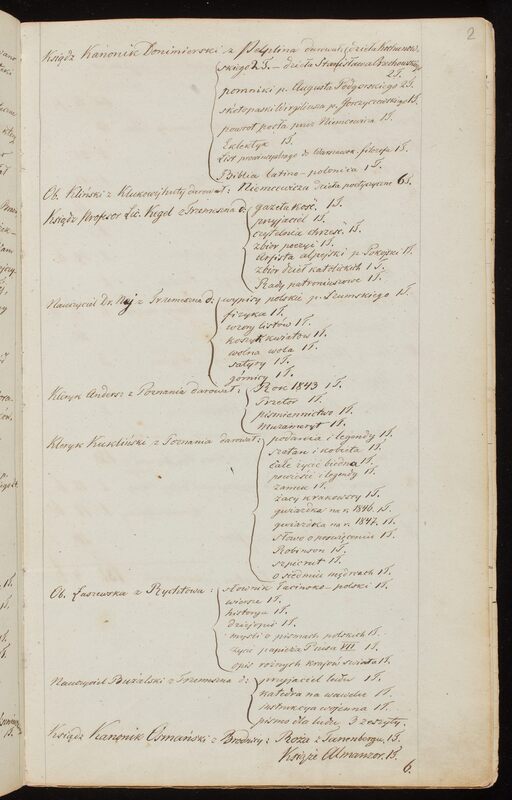 2
Ksiądz Kanonik Donimierski z Pelplina darował: dzieła Kochanow-
skiego 2 T. – dzieła Stanisława Orzechowskiego
2 T.
pomniki p. Augusta Podgorskiego 2 T.
skotopaski Wirgiliusa p. 1 T.
powrot posła przez Niemcewica 1 T.
Eklektyk 1 T.
List do Warszawsk. filozofa 1 T.
Biblia latino-polonica 1 T.
Ob. Kliński z darował: Niemcewicza dzieła poetyczne 6 T.
Ksiądz Profesor Lic. Kegel z Trzemeszna d: gazeta kość. 1 T.
przyjaciel 1 T.
czytelnia chrześć. 1 T.
zbiór poezyi 1 T.
alpejski p. 1 T.
zbiór dzieł katolickich 1 T.
Rady 1 T.
Nauczyciel Dr. z Trzemeszna d: wypisy polskie p. Szumskiego 1 T.
fizyka 1 T.
wzory listów 1 T.
koszyk kwiatów 1 T.
wolna wola 1 T.
satyry 1 T.
górnicy 1 T.
Kleryk Anders z Poznania darował: Rok 1843 1 T.
1 T.
piśmiennictwo 1 T.
1 T.
Kleryk Kukliński z Poznania darował: podania i legendy 1 T.
szatan i kobieta 1 T.
całe życie biedna 1 T.
powieści i legendy 1 T.
zamek 1 T.
żacy krakowscy 1 T.
gwiazdka na r. 1846. 1 T.
gwiazdka na r. 1847. 1 T.
słowo o poświęceniu 1 T.
Robinson 1 T.
1 T.
o siedmiu mędrcach 1 T.
Ob. Łaszewska z Rychtowa: słownik łacińsko-polski 1 T.
wiersze 1 T.
historya 1 T.
dziejopis 1 T.
myśli o pismach polskich 1 T.
życie papieża Piusa VII. 1 T.
opis rożnych krajów świata 1 T.
Nauczyciel z Trzemeszna d: przyjaciel ludu 1 T.
katedra na wawelu 1 T.
instrukcya wojenna 1 T.
pismo dla ludu 3 zeszyty.
Ksiądz Kanonik Osmański z Brodnicy: Roża z Tanenbergu, 1 T.
Książe Almanzor. 1 T.
6.